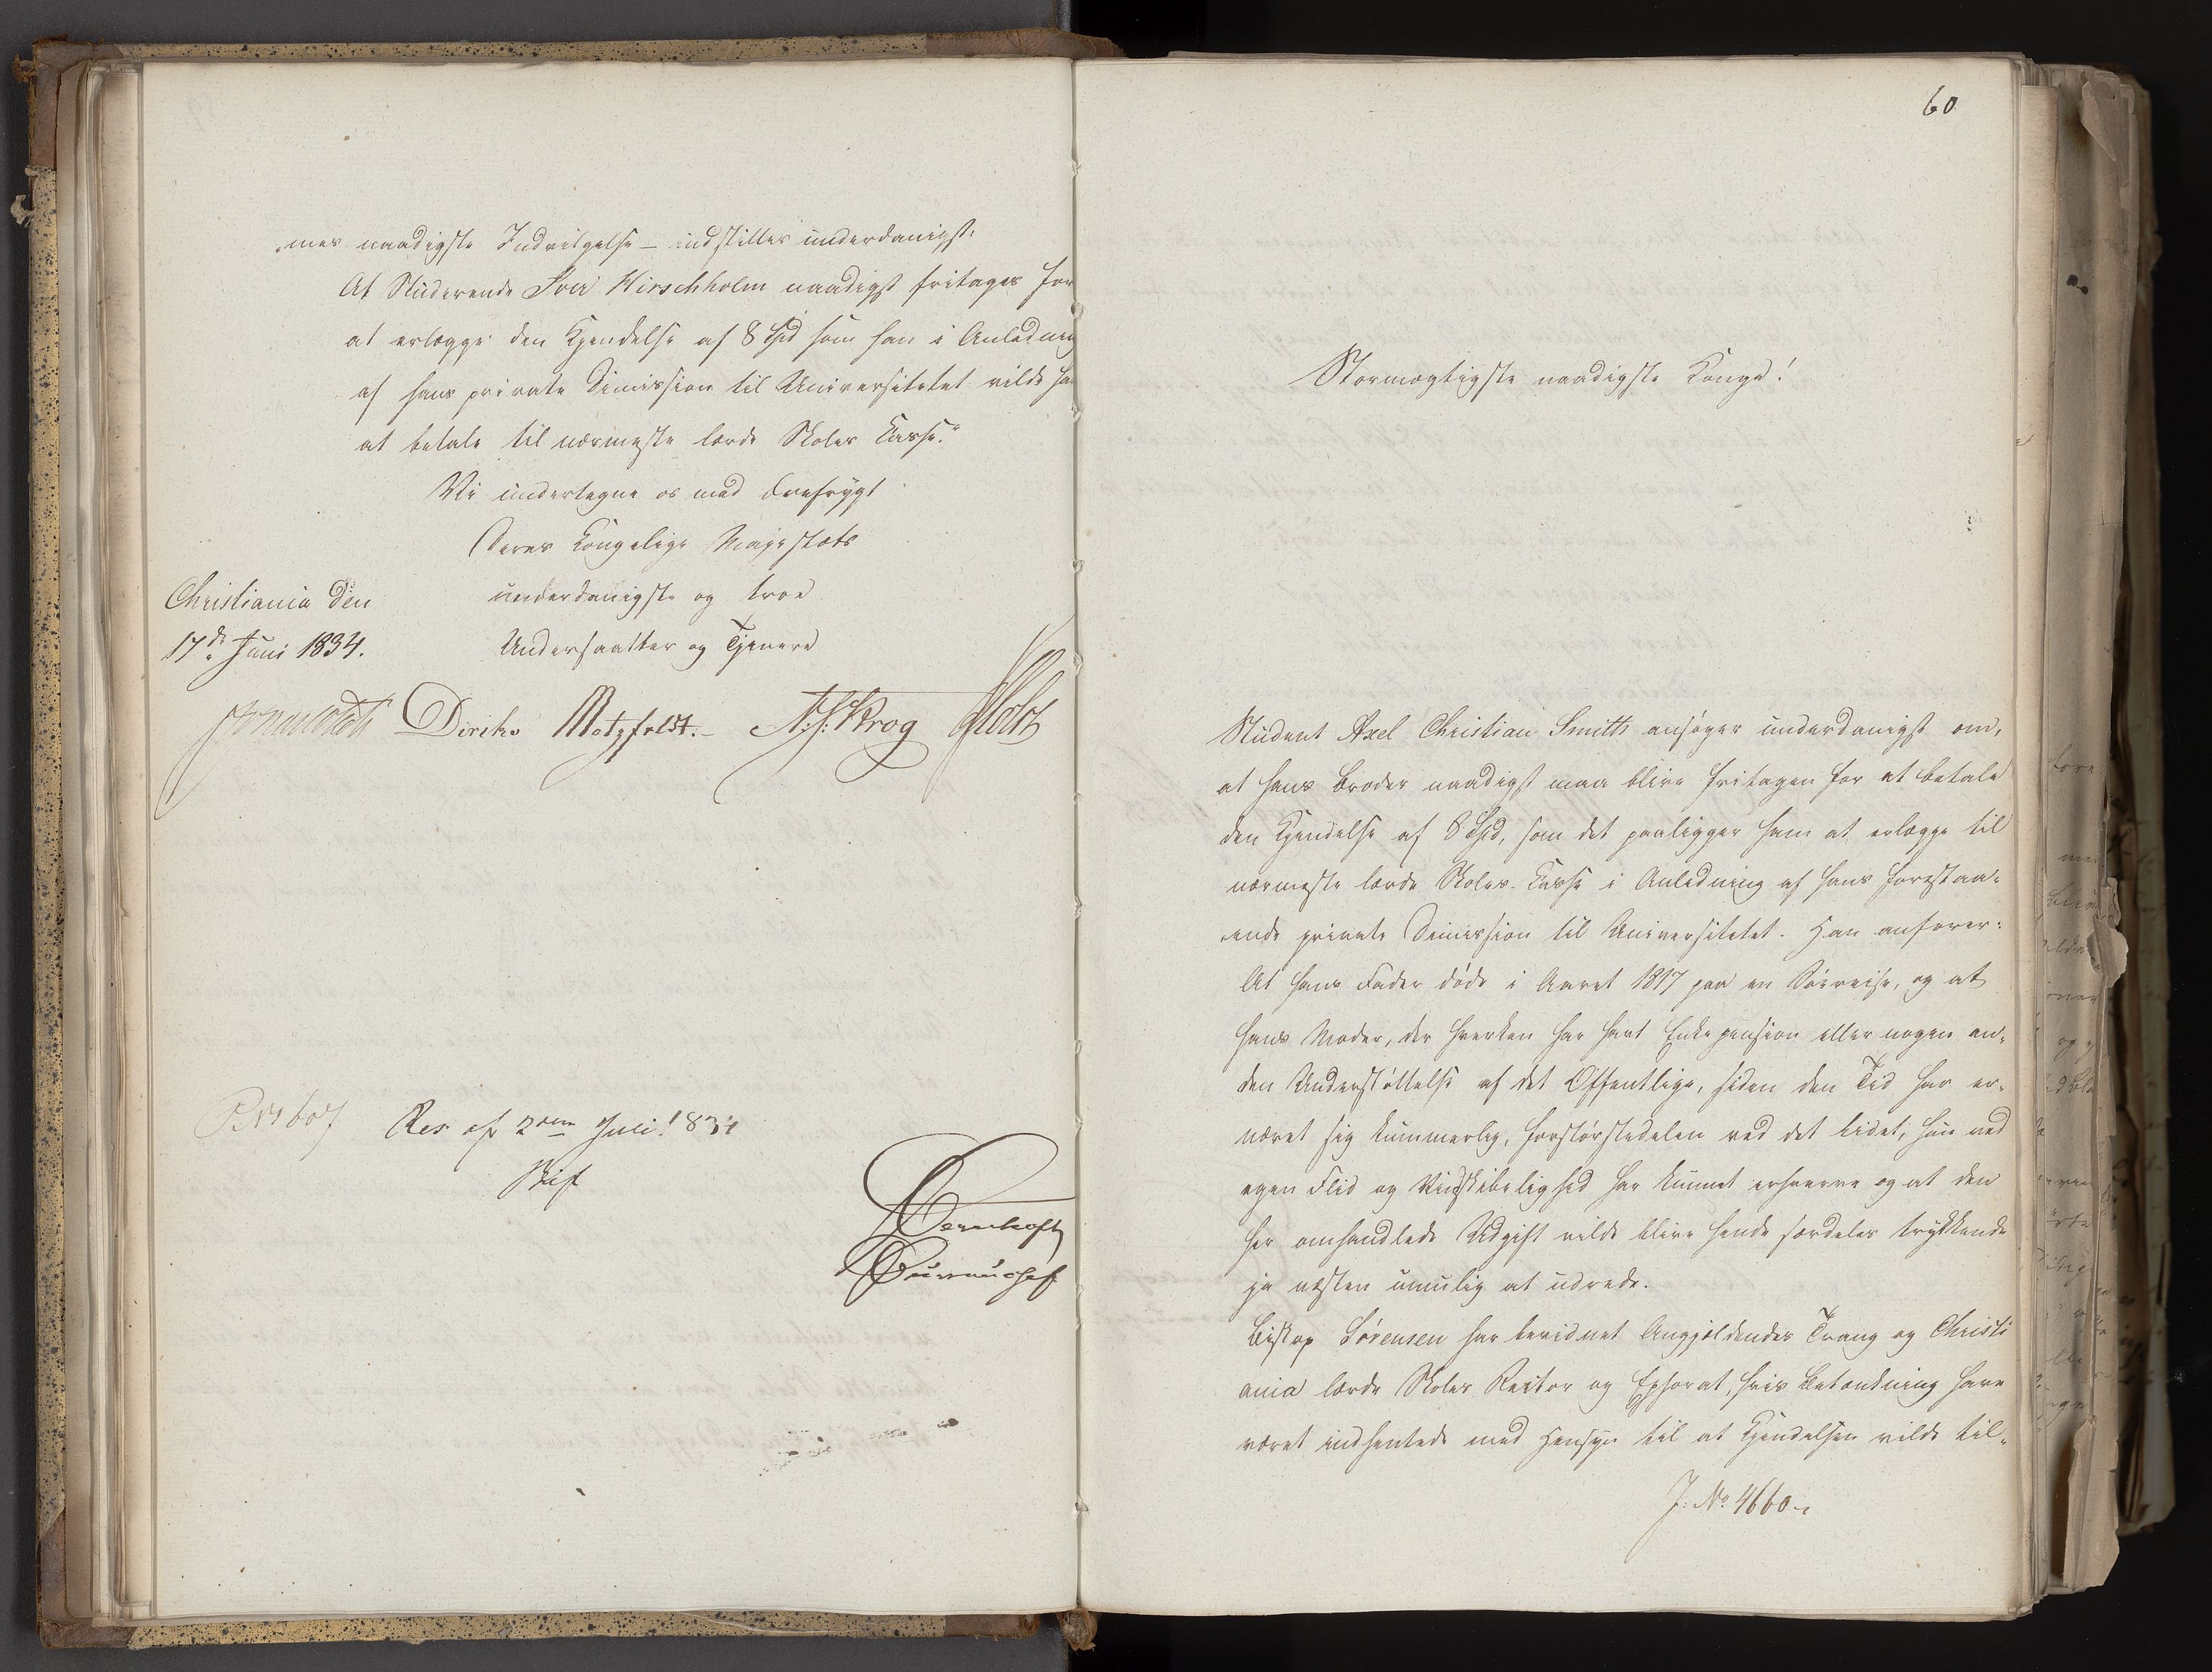 mer naadigste Indvilgelse – indstilles underdanigst:
At Studerende Iver Hirschholm naadigst fritages for
at erlægge den Kjendelse af 8 Spd som han i Anledning
af hans private Dimission til Universitetet vilde ha
at betale til nærmeste lærde Skoles Kasse."
Vi undertegne os med Ærefrygt
Deres Kongelige Majestæts
Christiania den
underdanigste og troe
17de Juni 1834.
Undersaatter og Tjenere
Diriks Motzfeldt. Krog Holst
No 607
Res af 2den Juli 1834
Bif
60
Stormægtigste naadigste Konge!
Student Axel Christian Smith ansøger underdanigst om,
at hans Broder naadigst maa blive fritagen for at betale
den Kjendelse af 8 Spd, som det paaligger ham at erlægge til
nærmeste lærde Skoles Kasse i Anledning af hans forestaa-
ende private Dimission til Universitetet. Han anfører:
At hans Fader døde i Aaret 1817 paa en Søereise, og at
hans Moder, der hverken har havt Enkepension eller nogen an-
den Understøttelse af det Offentlige, siden den Tid har er-
næret sig kummerlig, forstørstedelen ved det Lidet, hun ved
egen Flid og Vindskibelighed har kunnet erhverve og at den
her omhandlede Udgift vilde blive hende særdeles trykkende
ja næsten umulig at udrede.
Biskop Sørensen har bevidnet Angjældendes Trang og Christi
ania lærde Skoles Rector og Ephorat, hvis Betænkning have
været indhentede med Hensyn til at Kjendelsen vilde til-
J: No. 4660